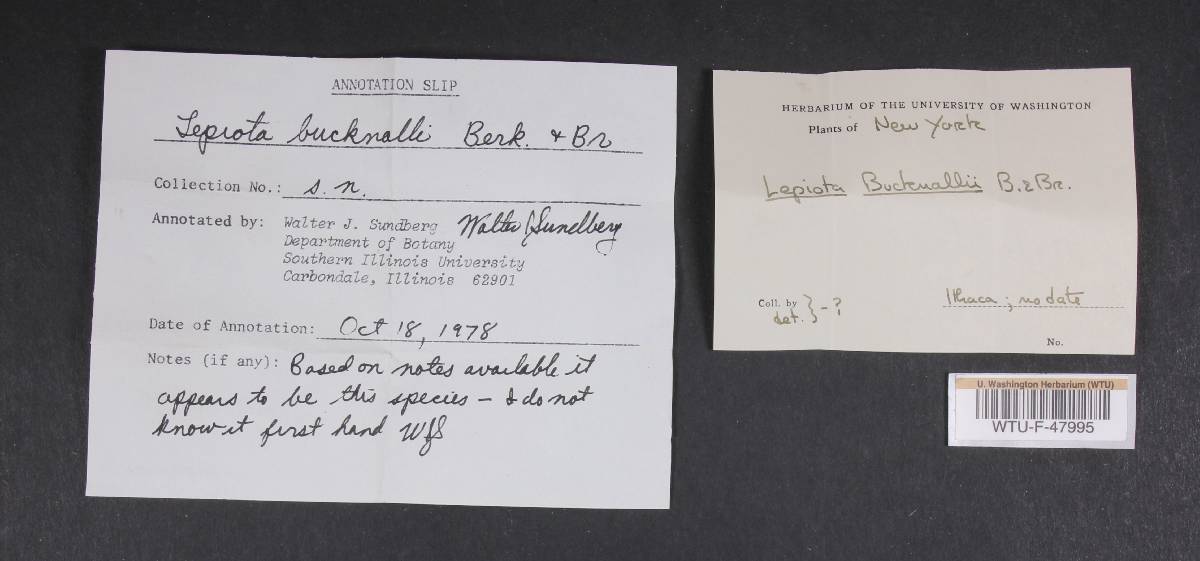 ANNOTATION SLIP
Lepiota bucknalli Berk. & Br
Collection No.: s.n.
Annotated by: Walter J. Sundberg Walter J Sundberg
Department of Botany
Southern Illinois University
Carbondale, Illinois 62901
Date of Annotation: Oct 18, 1978
Notes (if any): Based on notes available it
appears to be this species — I do not
know it first hand WJS
HERBARIUM OF THE UNIVERSITY OF WASHINGTON
Plants of New York
Lepiota Bucknallii B. & Br.
Coll. by } - ? Ithaca; no date
det.
No.
U. Washington Herbarium (WTU)
WTU-F-47995